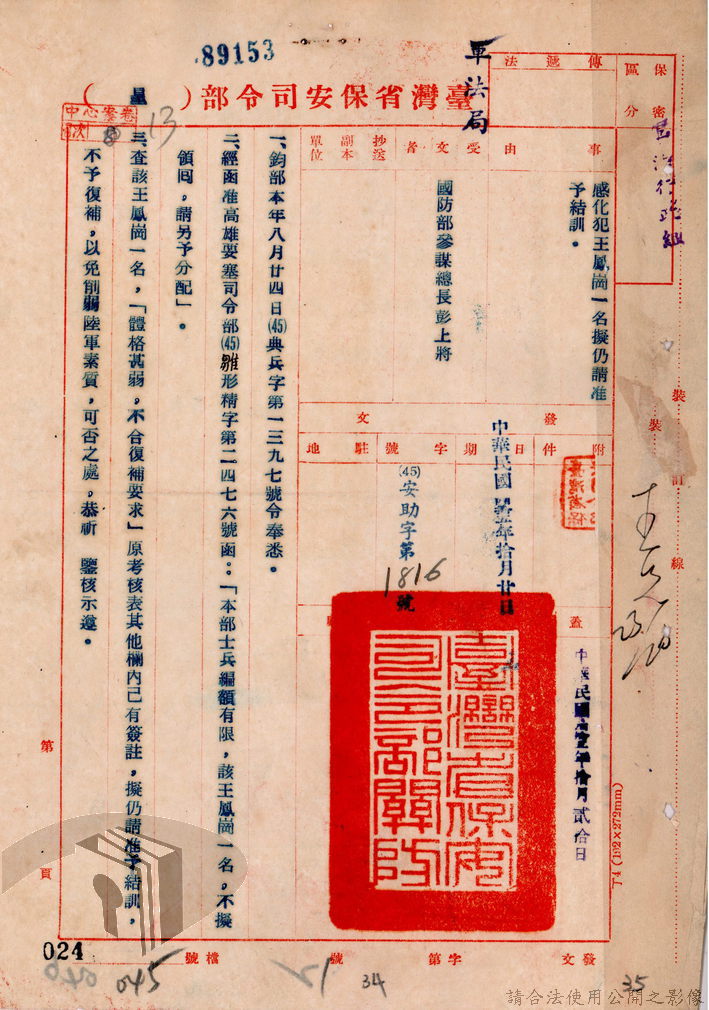 89153
軍法局
臺灣省保安司令部（　）
保密區分
傳遞法
事由
感化犯王鳳崗一名擬仍請准
予結訓。
受文者
國防部參謀總長彭上將
抄送副本單位
發文
附件
日期
中華民國肆拾伍年拾月廿日
字號
(45)安助字第1816號
駐地
蓋
中華民國
年拾月貳拾日
臺灣省保安司令部關防
一、鈞部本年八月廿四日(45)典兵字第一三九七號令奉悉。
二、經函准高雄要塞司令部(45)雛形精字第二四七六號函：「本部士兵編額有限，該王鳳崗一名，不擬
領回，請另予分配」。
三、查該王鳳崗一名，「體格甚弱。不合復補要求」原考核表其他欄內已有簽註，擬仍請准予結訓，
不予復補，以免削弱陸軍素質，可否之處，恭祈　鑒核示遵。
中心案卷
次
13
裝
裝訂線
第
頁
丁4 (192×272mm)
發文
字第
號
檔號
024
045
34
35
請合法使用公開之影像